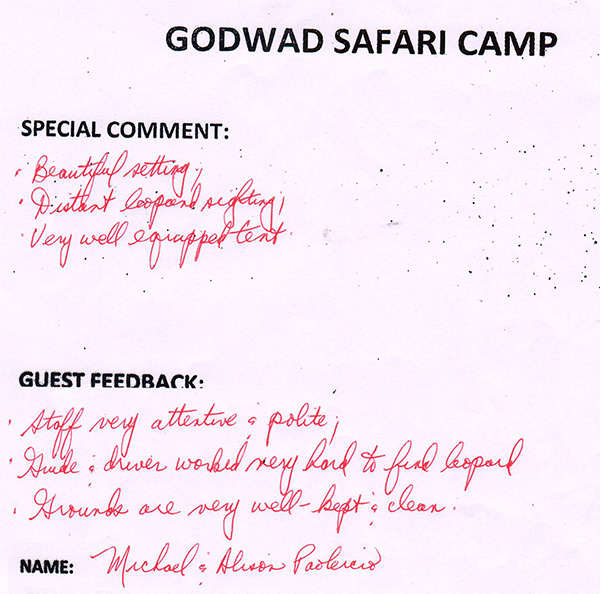 GODWAD SAFARI CAMP
SPECIAL COMMENT:
• Beautiful setting;
• Distant leopard sighting;
• Very well equipped tent.
GUEST FEEDBACK:
• Staff very attentive & polite;
• Guide & driver worked very hard to find leopard
• Grounds are very well-kept & clean.
NAME: Michael & Alison